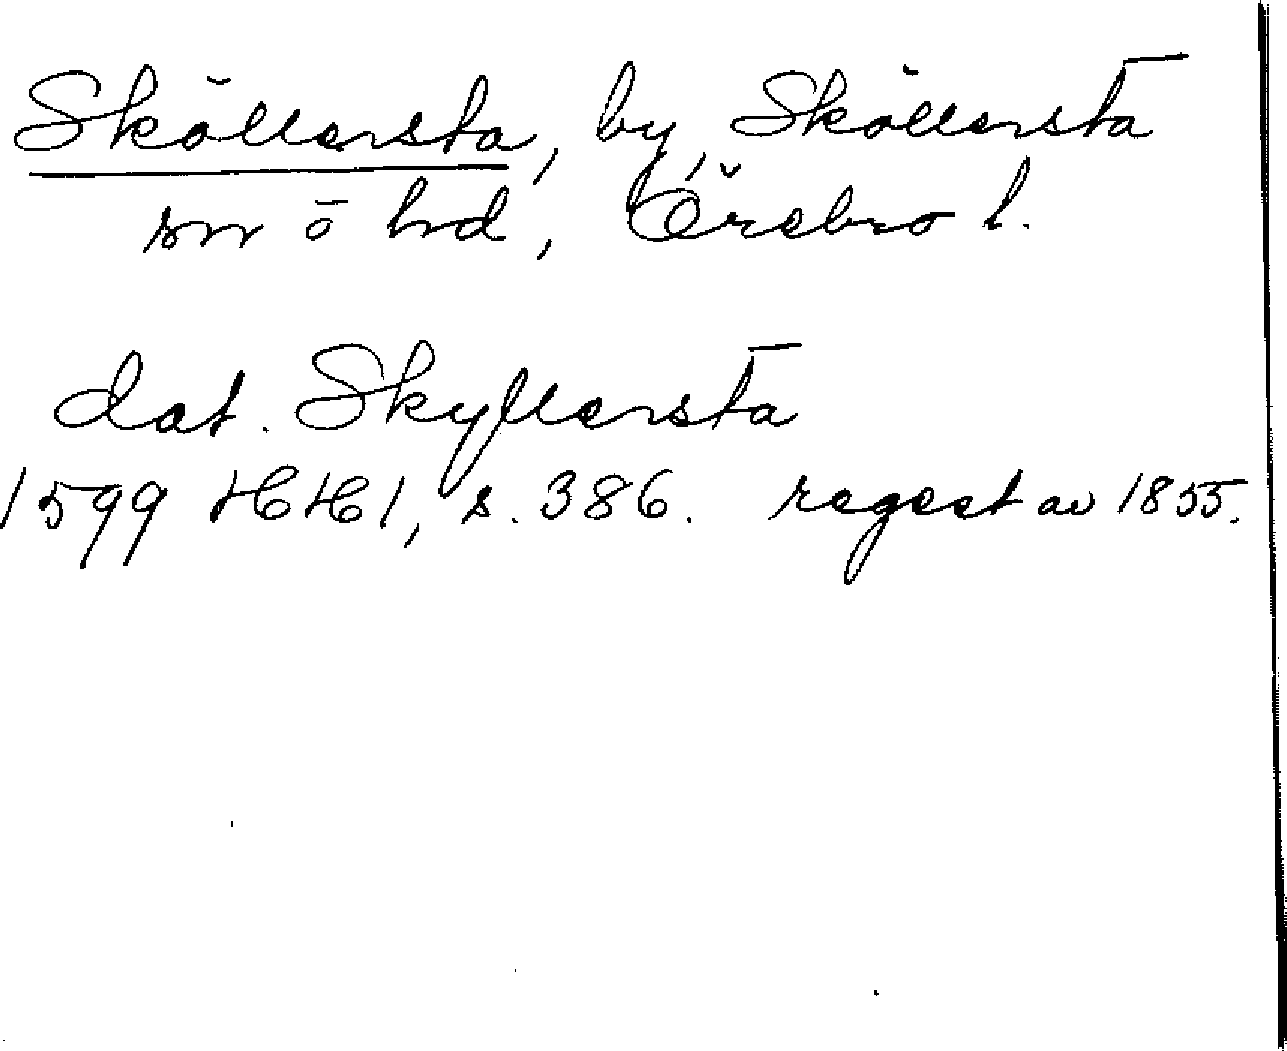 Sköllersta, by, Sköllersta
sn o hd, Örebro l.
dat. Skyllersta
1599 HH 1, s. 386. regest av 1855.